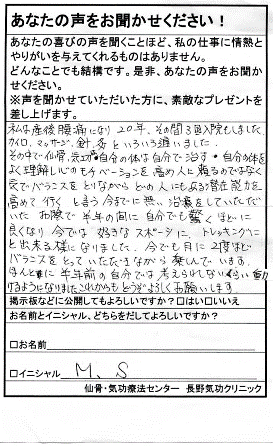 あなたの声をお聞かせください！
あなたの喜びの声を聞くことほど、私の仕事に情熱と
やりがいを与えてくれるものはありません。
どんなことでも結構です。是非、あなたの声をお聞か
せください。
※声を聞かせていただいた方に、素敵なプレゼントを
差し上げます。
私は産後腰痛になり20年、その間3回入院もしました。
カイロ、マッサージ、針、灸といろいろ通いました。
その中で仙骨、気功が自分の体は自分で治す・自分の体を
よく理解し心のモチベーションを高め人に頼るのではなく
気でバランスをとりながらどの人にもある潜在能力を
高めて行くと言う今までに無い治療をしていただいて
いたお陰で半年の間に自分でも驚くほどに
良くなり今では好きなスポーツに、トレッキングに
と出来る様になりました。今でも月に2度ほど
バランスをとっていただきながら楽しんでいます。
ほんとに半年前の自分では考えられないくらい動
けるようになりましたこれからもどうぞよろしくお願いします。
掲示板などに公開してもよろしいですか？□はい□いいえ
お名前とイニシャル、どちらをだしてよろしいですか？
□お名前
□イニシャル M、S
仙骨・気功療法センター 長野気功クリニック